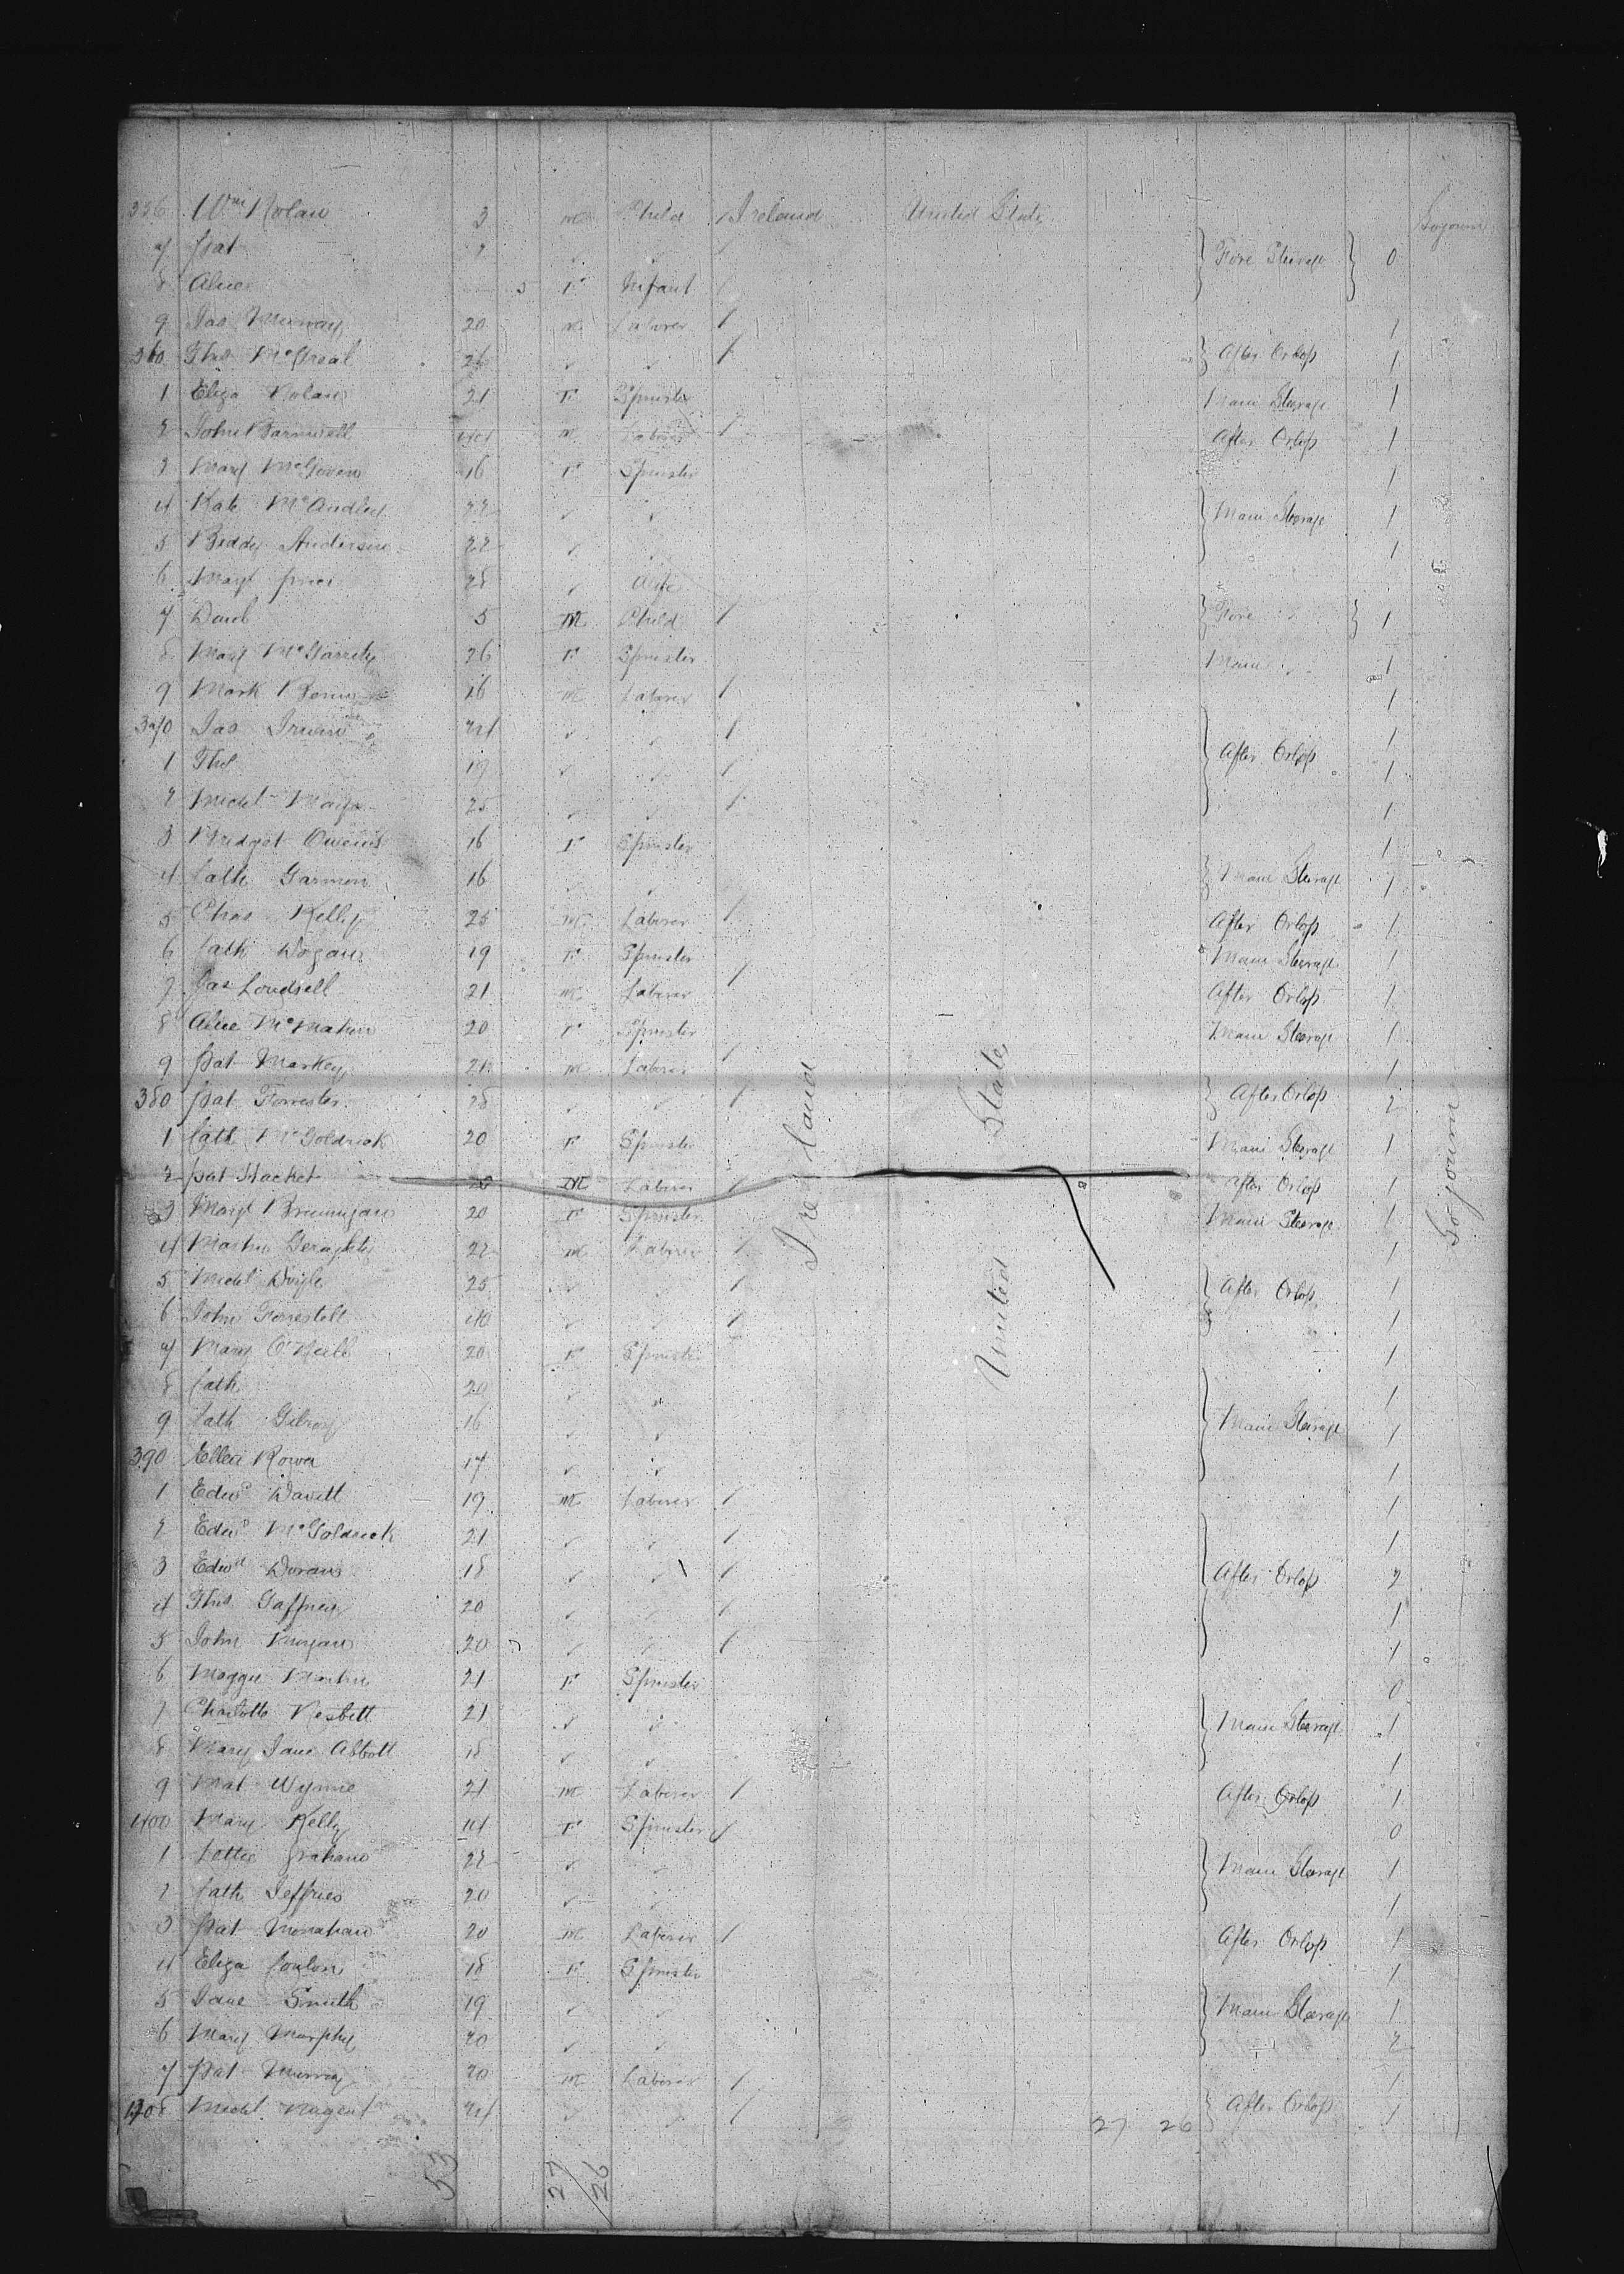 356 Wm Nolan 3 m Child / Ireland United States Sojourn
7 Pat Fore Steerage 0
8 Alice 5 F Infant /
9 Jas 20 m Laborer / 1
360 Thos McGreal 26 ✓ ✓ / After Orlop 1
1 Eliza Nolan 21 F Spinster Main Steerage 1
2 John Barnwell m Laborer / After Orlop 1
3 Mary McGovern 16 F Spinster 1
4 Kate McAndley 22 ✓ ✓ Main Steerage 1
5 Biddy Anderson 22 ✓ ✓ 1
6 Margt Price 28 ✓ Wife
7 5 M Child / Fore ✓ 1
8 Mary McGarrity 26 F Spinster Main ✓ 1
9 Mark 26 m Laborer / 1
370 Jas Irwin 24 ✓ ✓ / 1
1 Thos 19 ✓ ✓ / After Orlop 1
2 Michl 25 ✓ ✓ / 1
3 Bridget Owens 16 F Spinster 1
4 Cath Garmon 16 ✓ ✓ Main Steerage 1
5 Chas Kelly 25 m Laborer / After Orlop 1
6 Cath Dogan 19 F Spinster Main Steerage 1
7 Jas 21 m Laborer / After Orlop 1
8 Alice McMahon 20 F Spinster Main Steerage 1
9 Pat Markey m Laborer / 1
380 Pat Forrester 28 ✓ ✓ / After Orlop 2
1 Cath McGoldrick 20 F Spinster Main Steerage 1
2 Pat Hacket 20 M Laborer / After Orlop 1
3 Margt Brannigan 20 F Spinster Main Steerage 1
4 Martin Geraghty 22 m Laborer / 1
5 Michl Doyle 25 ✓ ✓ / After Orlop 1
6 John Forrestell 40 ✓ ✓ / 1
7 Mary O'Neill 20 F Spinster 1
8 Cath 20 ✓ " 1
9 Cath Gilroy 16 ✓ ✓ Main Steerage 1
390 Ellen Rowen 17 ✓ ✓ 1
1 Edwd Davitt 19 m Laborer / 1
2 Edwd McGoldrick 21 ✓ ✓ / 1
3 Edwd Doran 18 ✓ ✓ / After Orlop 2
4 Thos Gaffney 20 ✓ ✓ / 1
5 John 20 ✓ ✓ / 1
6 Maggie Martin 21 F Spinster 0
7 Charlotte Nesbitt 21 ✓ ✓ Main Steerage 1
8 Mary Jane Abbott 18 ✓ ✓ 1
9 Mat Wynne 21 m Laborer / After Orlop 1
400 Mary Kelly F Spinster / 0
1 Lettie Graham 22 ✓ ✓ Main Steerage 1
2 Cath Jeffries 20 ✓ ✓ 1
3 Pat Monahan 20 m Laborer / After Orlop 1
4 Eliza Conlon 18 F Spinster 1
5 Jane Smith 19 ✓ ✓ Main Steerage 1
6 Mary Murphy 20 ✓ ✓ 2
7 Pat Murray 20 m Laborer / 1
408 Michl Nugent 24 ✓ ✓ / After Orlop 1
Ireland
United States
Sojourn
27 26
53
27/26